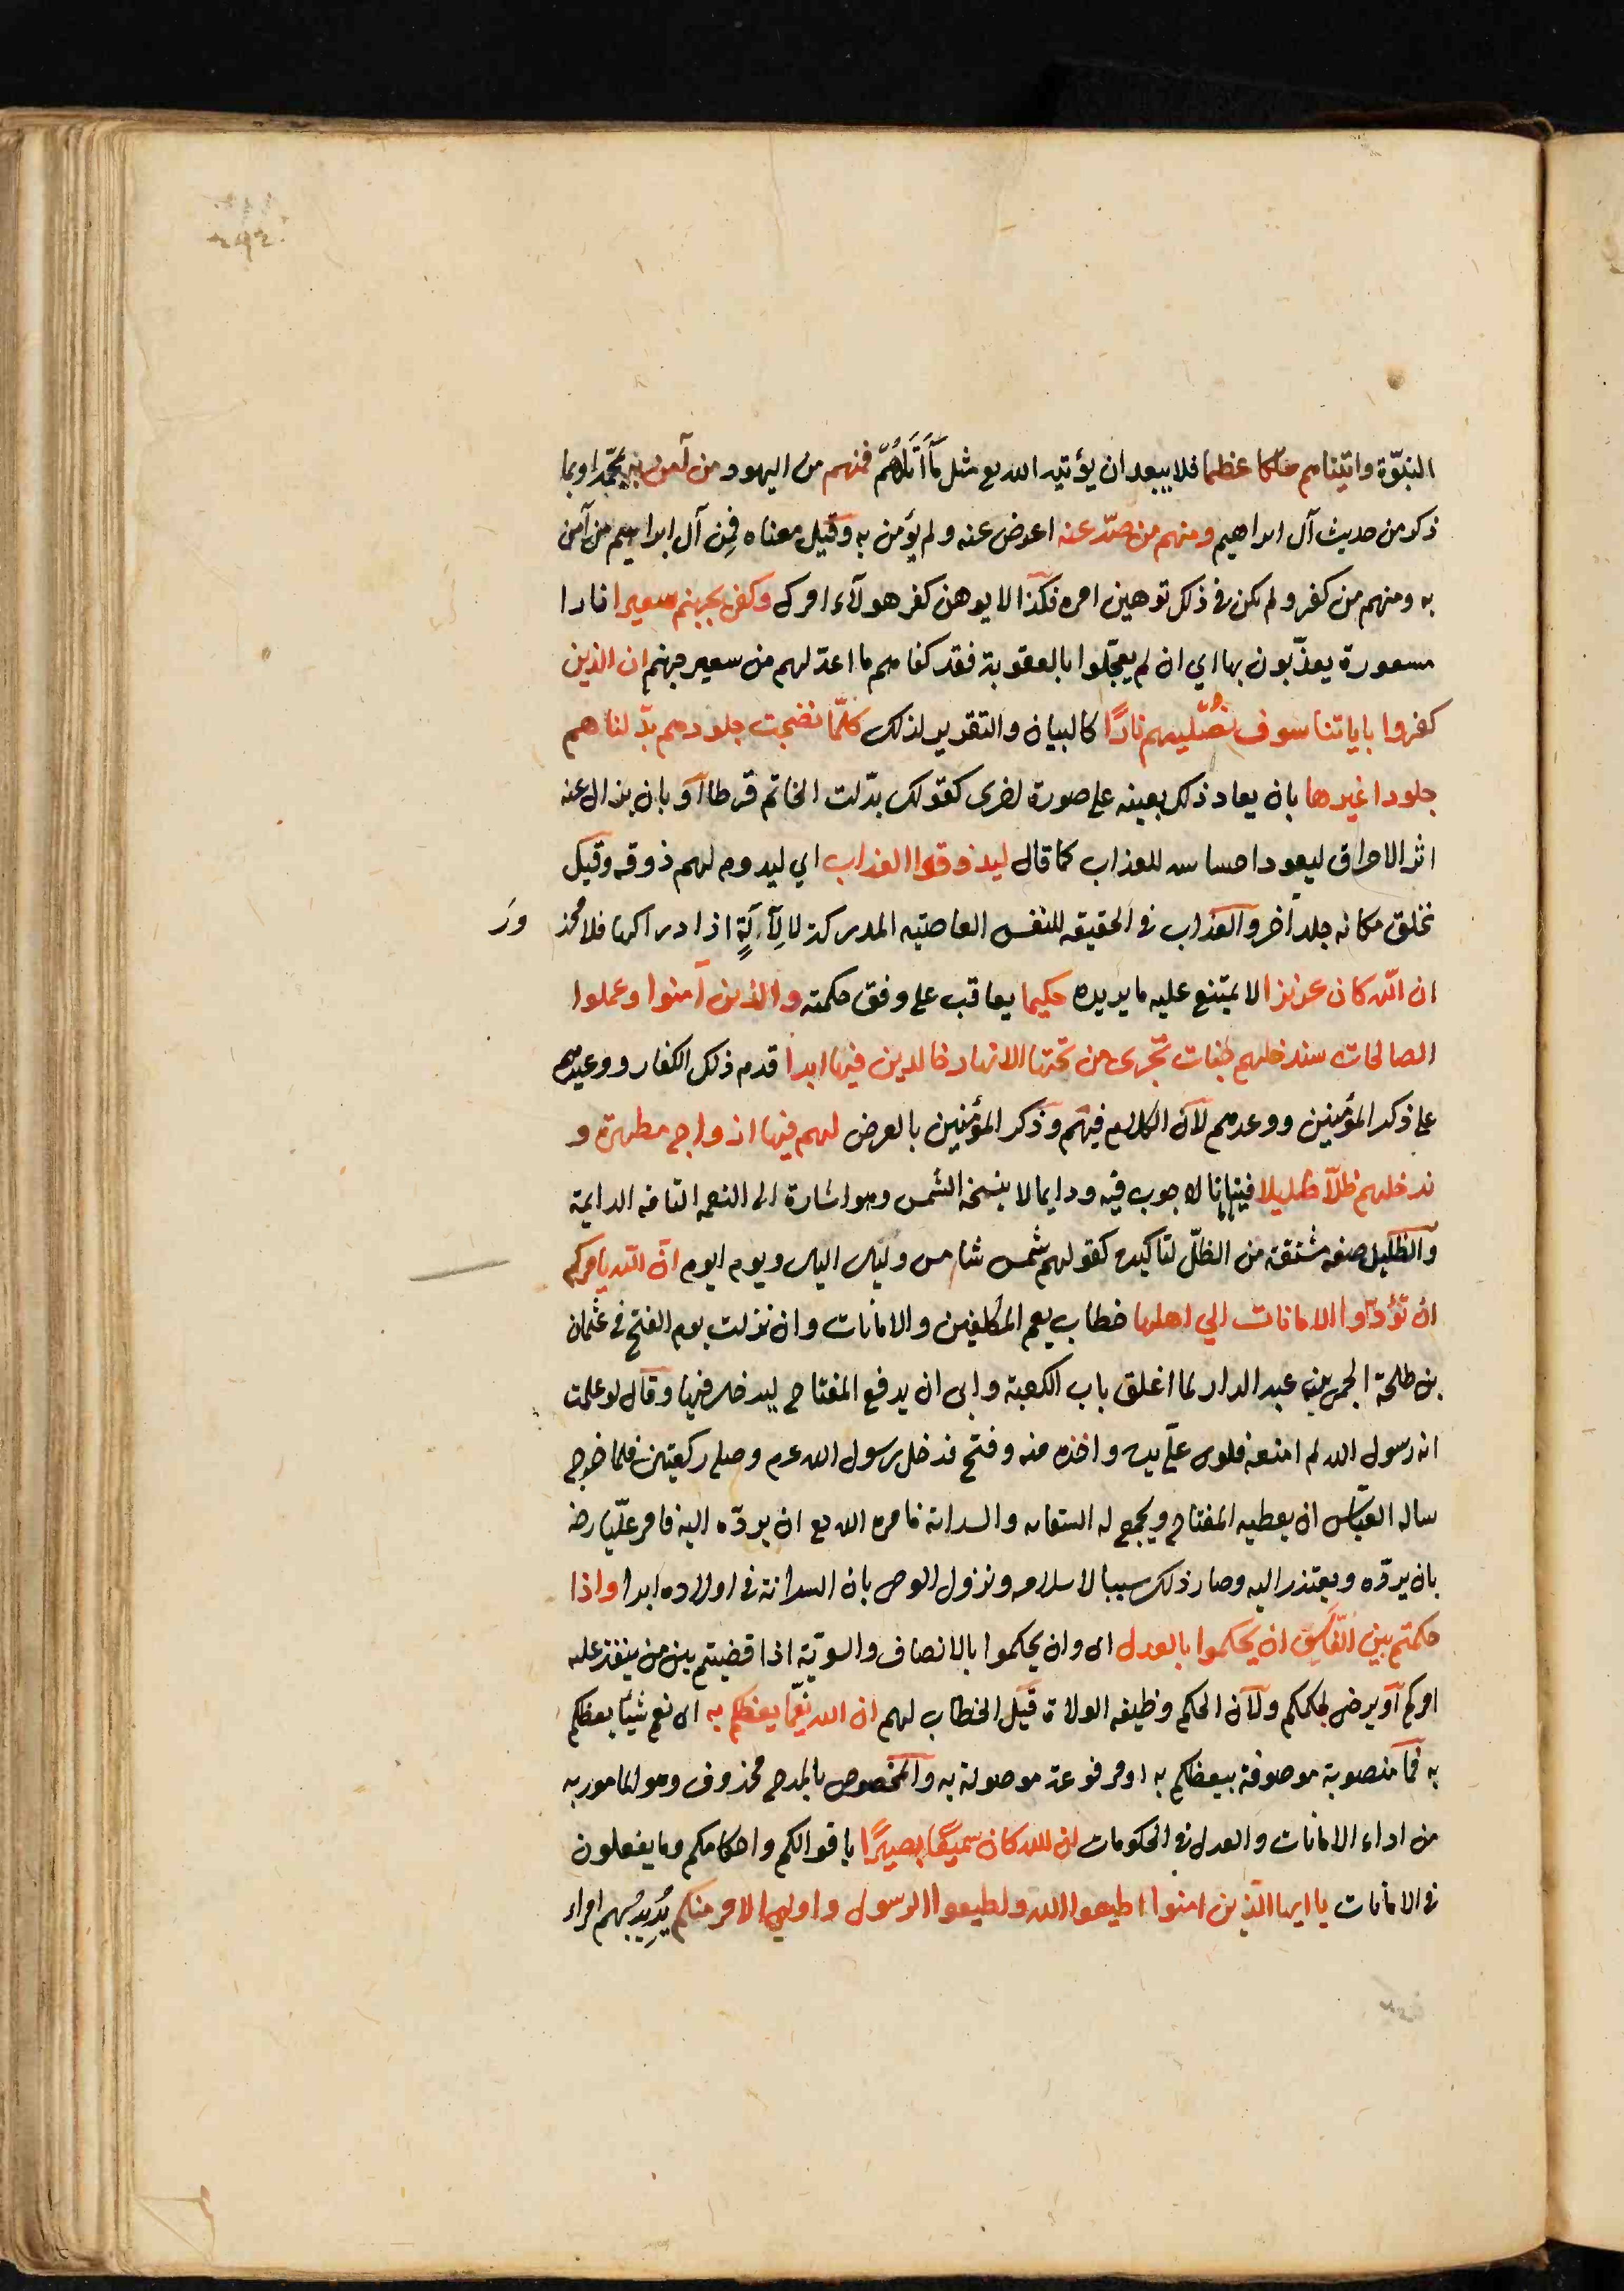 النبوّة واتيناهم ملكا عظيما فلا يبعد ان يؤتيه الله تع مثل ما اتاهم فمنهم من اليهود من آمن به بمحمّد او بما
ذكر من حديث آل ابراهيم ومنهم من صدّ عنه اعرض عنه ولم يؤمن به وقيل معناه فمِن آل ابراهيم من آمن
به ومنهم من كفر ولم يكن في ذلك توهين امره فكذا لا يوهن كفر هولآء امرك وكفى بجهنم سعيرا نارا
مسعورة يعذّبون بها اي ان لم يعجّلوا بالعقوبة فقد كفاهم ما اعد لهم من سعير جهنم ان الذين
كفروا باياتنا سوف نُصْليهم نارًا كالبيان والتقرير لذلك كلّما نضجت جلودهم بدّلناهم
جلودا غيرها بان يعاد ذلك بعينه على صورة اخرى كقولك بدّلت الخاتم قرطا او بان يزال عنه
اثر الاحراق ليعود احساسه للعذاب كما قال ليذوقوا العذاب اي ليدوم لهم ذوقه وقيل
نخلق مكانه جلد آخر والعذاب في الحقيقه للنفس العاصيه المدركة لا لِآلَةٍ ادراكها فلا محذ ورَ
ان الله كان عزيزا لا يمتنع عليه ما يريده حكيما يعاقب على وفق حكمته والذين آمنوا وعملوا
الصالحات سندخلهم جنات تجرى من تحتها الانهار خالدين فيها ابدا قدم ذكر الكفار ووعيدهم
على ذكر المؤمنين ووعدهم لان الكلام فيهم وذكر المؤمنين بالعرض لهم فيها ازواج مطهرة و
ندخلهم ظلّا ظليلا فينانا لا جوب فيه ودايما لا ينسخه الشمس وهو اشارة الى النعمه التامه الدايمة
والظليل صفه مشتقة من الظلّ لتاكيده كقولهم شمس شامس وليل اليل ويوم ايوم انّ الله يامركم
ان تؤدّوا الامانات الي اهلها خطاب يعم المكلفين والامانات وان نزلت يوم الفتح في عثمان
بن طلحة بن عبد الدار لما اغلق باب الكعبة وابى ان يدفع المفتاح ليدخل فيها وقال لو علمت
انه رسول الله لم امنعه فلوى علي يده واخذه منه وفتح فدخل رسول الله عم وصلى ركعتين فلما خرج
ساله العبّاس ان يعطيه المفتاح ويجمع له السقايه والسدانة فامره الله تع ان يردّه اليه فامر عليّا رض
بان يردّه ويعتذر اليه وصار ذلك سببا لاسلامه ونزول الوحى بان السدانة في اولاده ابدا واذا
حكمتم بين النّاس ان يحكموا بالعدل اى وان يحكموا بالانصاف والسويّة اذا قضيتم بين من ينفذ عليه
امركم او يرضى بحكمكم ولان الحكم وظيفه الولاة قيل الخطاب لهم ان الله نعِمّا يعظكم به اى نعم شيئا يعظكم
به فما منصوبة موصوفة بيعظكم به او مرفوعة موصولة به والمخصوص بالمدح محذوف وهو المامور به
من اداء الامانات والعدل في الحكومات ان الله كان سميعًا بصيرًا باقوالكم واحكامكم وما يفعلون
في الامانات يا ايها الذين امنوا اطيعوا الله واطيعوا الرسول واولي الامر منكم يُرِيدُ بهم امراء